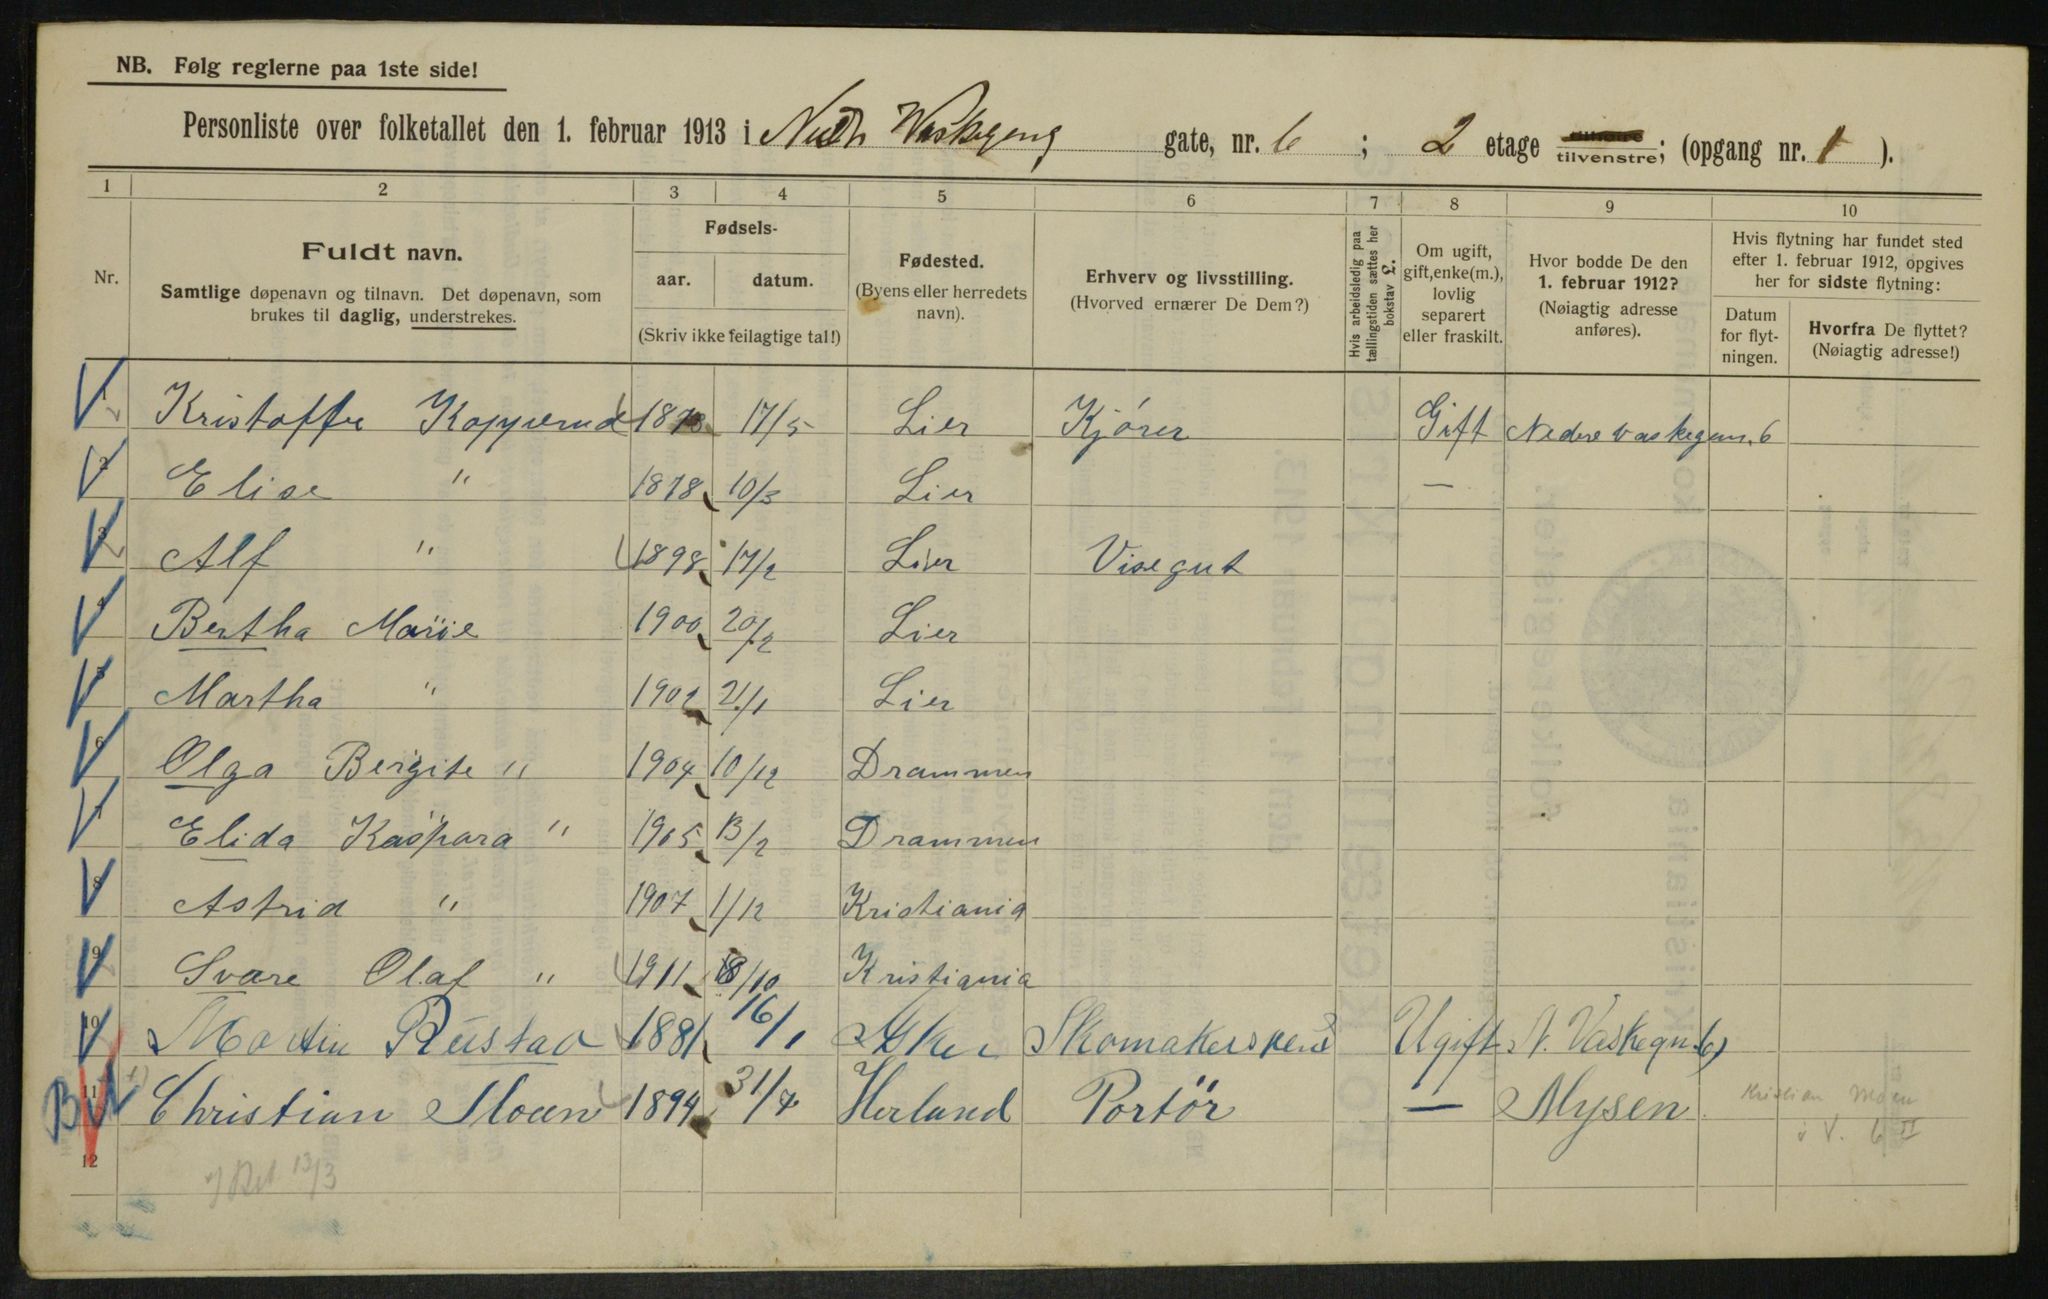 NB. Følg reglerne paa 1ste side!
Personliste over folketallet den 1. februar 1913 i Nedr Vaskegang gate, nr. 6 ; 2 etage tilvenstre; (opgang nr. 1 ).
1 2 3 4 5 6 7 8 9 10
Nr.
Fuldt navn.
Samtlige døpenavn og tilnavn. Det døpenavn, som
brukes til daglig, understrekes.
Fødsels-
aar. datum.
(Skriv ikke feilagtige tal!)
Fødested.
(Byens eller herredets
navn).
Erhverv og livsstilling.
(Hvorved ernærer De Dem?)
Hvis arbeidsledig paa
tællingstiden sættes her
bokstav L.
Om ugift,
gift, enke(m.),
lovlig
separert
eller fraskilt.
Hvor bodde De den
1. februar 1912?
(Nøiagtig adresse
anføres).
Hvis flytning har fundet sted
efter 1. februar 1912, opgives
her for sidste flytning:
Datum
for flyt-
ningen.
Hvorfra De flyttet?
(Nøiagtig adresse!)
1 Kristoffer Kopperud 1873 17/5 Lier Kjører Gift Nedre Vaskegan. 6
2 Elise " 1878 10/3 Lier —
3 Alf " 1898 17/2 Lier Visegut
4 Bertha Marie 1900 20/2 Lier
5 Martha " 1902 21/1 Lier
6 Olga Bergite " 1904 10/12 Drammen
7 Elida Kaspara " 1905 13/2 Drammen
8 Astrid " 1907 1/12 Kristiania
9 Svare Olaf " 1911 8/10 Kristiania
10 Martin Rustad 1881 16/1 Asker Skomakersvend Ugift N. Vaskegn. 6
11 Christian Moen 1894 31/7 Herland Portör — Mysen Kristian Moen
12 13/3 V. 6 II